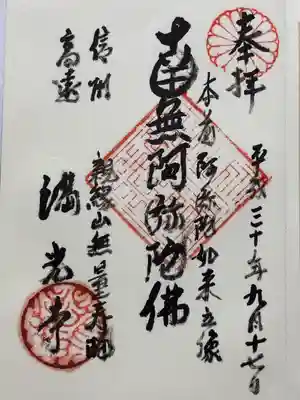 奉拝
平成三十年九月十七日
本尊阿弥陀如来立像
南無阿弥陀佛
親縁山無量寿院
信州
高遠
満光寺